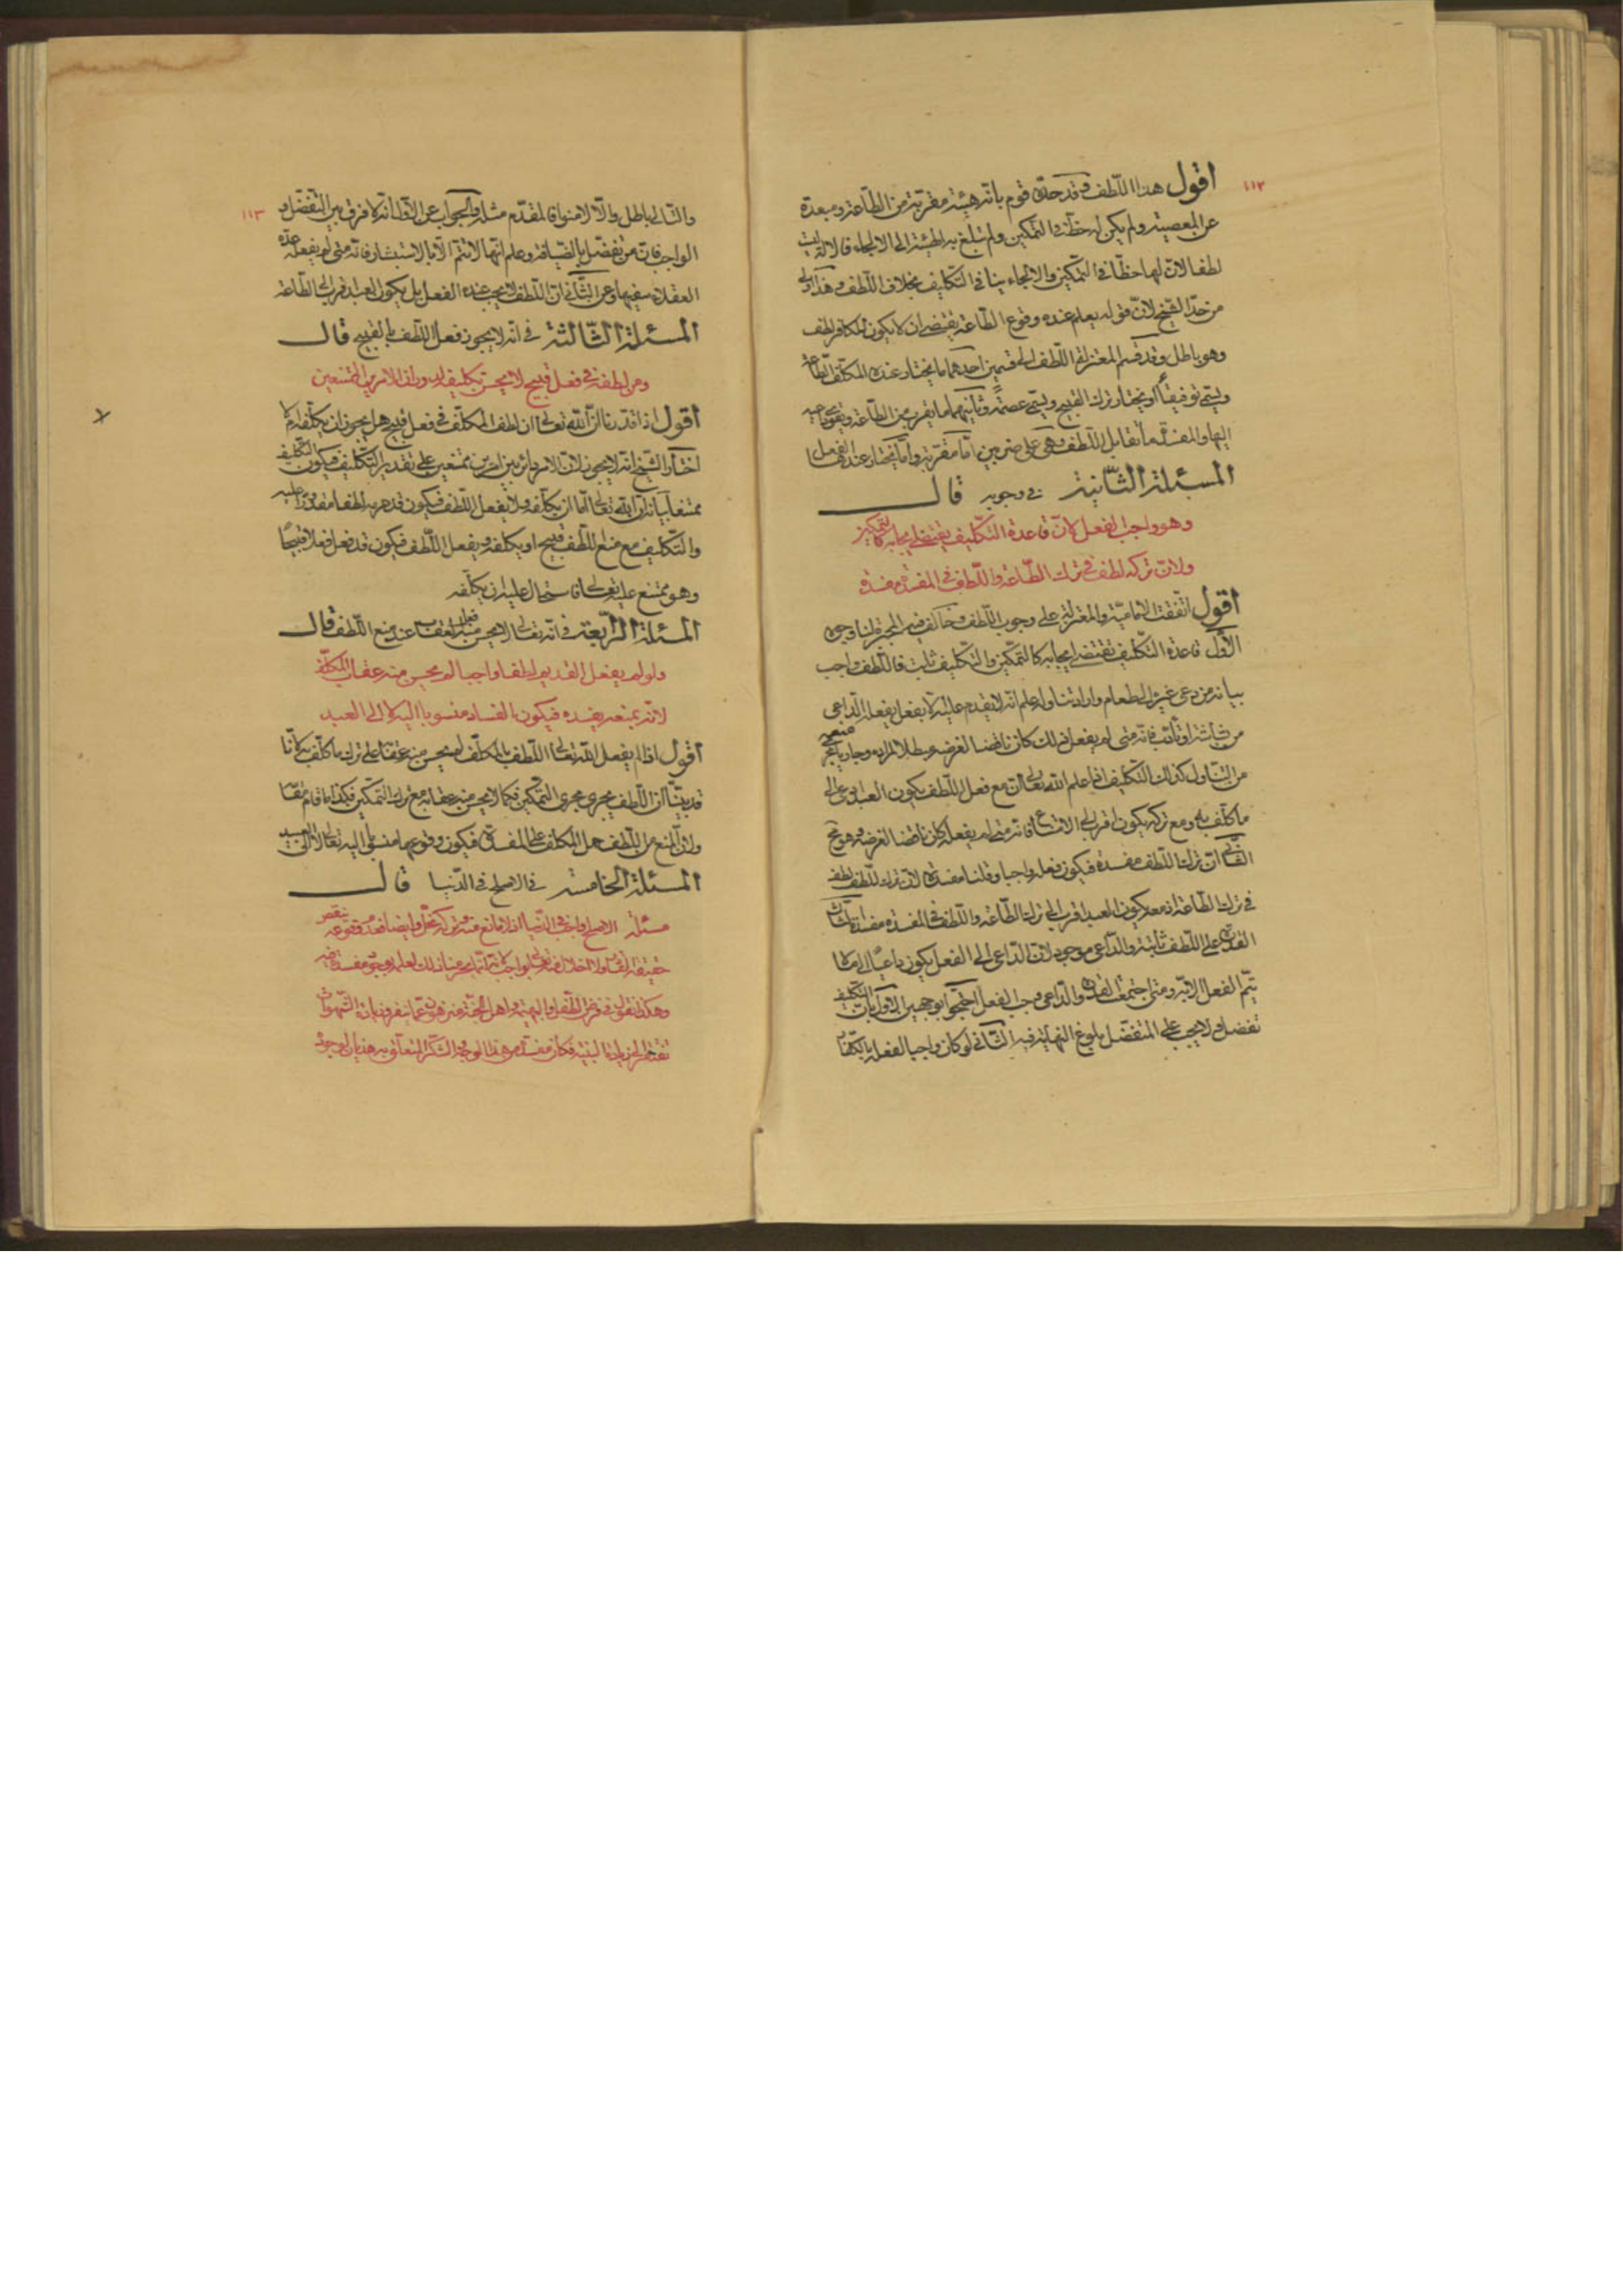 ١١٢
اقول هذا اللّطف وقد حدّه قوم بانّه هيئة مقربة من الطّاعة ومبعدة
عن المعصية ولم يكن له حظّ في التمكين ولم تبلغ به الهيئة الى الالجاء فالالة ليست
لطفا لان لها حظّا في التمكين والالجاء ينافي التكليف بخلاف اللّطف وهذا اولى
من حدّ الشّيخ لانّ قوله يعلم عنده وقوع الطّاعة يقتضى ان لا يكون للكافر لطف
وهو باطل وقد قسم المعتزلة اللّطف الى قسمين احدهما ما يختار عنده المكلّف الطّاعة
ويسمّى توفيقاً او يختار ترك القبيح ويسمّى عصمة وثانيهما ما يقرب من الطّاعة ويقوى داعيه
اليها والمفسدة ما تقابل اللّطف وهي على ضربين امّا مقرّبة وامّا يختار عندها الفعل
المسئلة الثّانية في وجوبه قال
وهو واجب الفعل لانّ قاعدة التكليف يقتضى ايجابه كالتمكين
ولانّ تركه لطف في ترك الطّاعة واللّطف في المفسدة مفسدة
اقول اتّفقت الاماميّة والمعتزلة على وجوب اللّطف وخالف فيه المجبرة لنا وجوه
الاوّل قاعدة التكليف تقتضى ايجابه كالتمكين والتكليف ثابت فاللّطف واجب
بيانه من دعى غيره الى طعام واراد تناوله وعلم انّه لا يقدم عليه الا بفعل يفعله الدّاعى
من بشاشة او تأدّب فانّه متى لم يفعل ذلك كان ناقضا لغرضه ومبطلا لمراده وجار مجرى منعه
من التناول كذلك التكليف اذا علم الله تعالى انّ مع فعل اللّطف يكون العبد ادعى الى
ما كلّف به ومع تركه يكون اقرب الى الامتناع فانّه متى لم يفعله كان ناقضا لغرضه وهو مح
الثّانى انّ ترك اللّطف مفسدة فيكون فعله واجبا وقلنا مفسدة لانّ ترك اللّطف لطف
في ترك الطّاعة اذ معه يكون العبد اقرب الى ترك الطّاعة واللّطف في المفسدة مفسدة الثّالث
القدرة على اللّطف ثابتة والدّاعى موجود لانّ الدّاعى الى الفعل يكون داعياً الى ما لا
يتمّ الفعل الا به ومتى اجتمعت القدرة والدّاعى وجب الفعل احتجّوا بوجهين الاوّل بانّ التكليف
تفضل ولا يجب على المتفضّل بلوغ النهاية فيه الثّانى لو كان واجبا لفعله بالكفّار
١١٣
والتّالى باطل والّا لامنوا فالمقدّم مثله والجواب عن الاوّل انّه لا فرق بين التفضّل و
الواجب فانّ من تفضّل بالضّيافة وعلم انّها لا تتمّ الّا بالاستبشار فانّه متى لم يفعله عدّه
العقلاء سفيها وعن الثّانى انّ اللّطف لا يجب عنده الفعل بل يكون العبد اقرب الى الطّاعة
المسئلة الثّالثة في انّه لا يجوز فعل اللّطف بالقبيح قال
ومن لطفه في فعل قبيح لا يحسن تكليفه لدوران الامر بين الممتنعين
اقول اذا قدّرنا انّ الله تعالى انّ لطف المكلّف في فعل قبيح هل يجوز ان يكلّفه ام لا
اختار الشّيخ انّه لا يجوز لانّ الامر دائر بين امرين ممتنعين على تقدير التكليف فيكون التكليف
ممتنعا بيانه انّ الله تعالى امّا ان يكلّفه ولا يفعل اللّطف فيكون قد حرمه لطفا مقدورا عليه
والتكليف مع منع اللّطف قبيح او يكلّفه ويفعل اللّطف فيكون قد فعل فعلا قبيحًا
وهو ممتنع عليه تعالى فاستحال عليه ان يكلّفه
المسئلة الرّابعة في انّه تعالى لا يحسن منه فعل العقاب عند منع اللّطف قال
ولو لم يفعل القديم لطفا واجبا لم يحسن منه عقاب المكلّف
لانّه بمنعه يفسده فيكون الفساد منسوبا اليه لا الى العبد
اقول اذا لم يفعل الله تعالى اللّطف بالمكلّف لم يحسن منه عقابه على ترك ما كلّف به لانّا
قد بيّنا انّ اللّطف يجرى مجرى التمكين فكما لا يحسن منه عقابه مع ترك التمكين فكذا ما قام مقامه
ولانّ المنع من اللّطف حمل المكلّف على المفسدة فيكون وقوعها منسوبا اليه تعالى لا الى العبد
المسئلة الخامسة في الاصلح في الدّنيا قال
مسئلة الاصلح واجب في الدّنيا اذ لا مانع منه وتركه بخل وايضا فعدم وقوعه ينقص